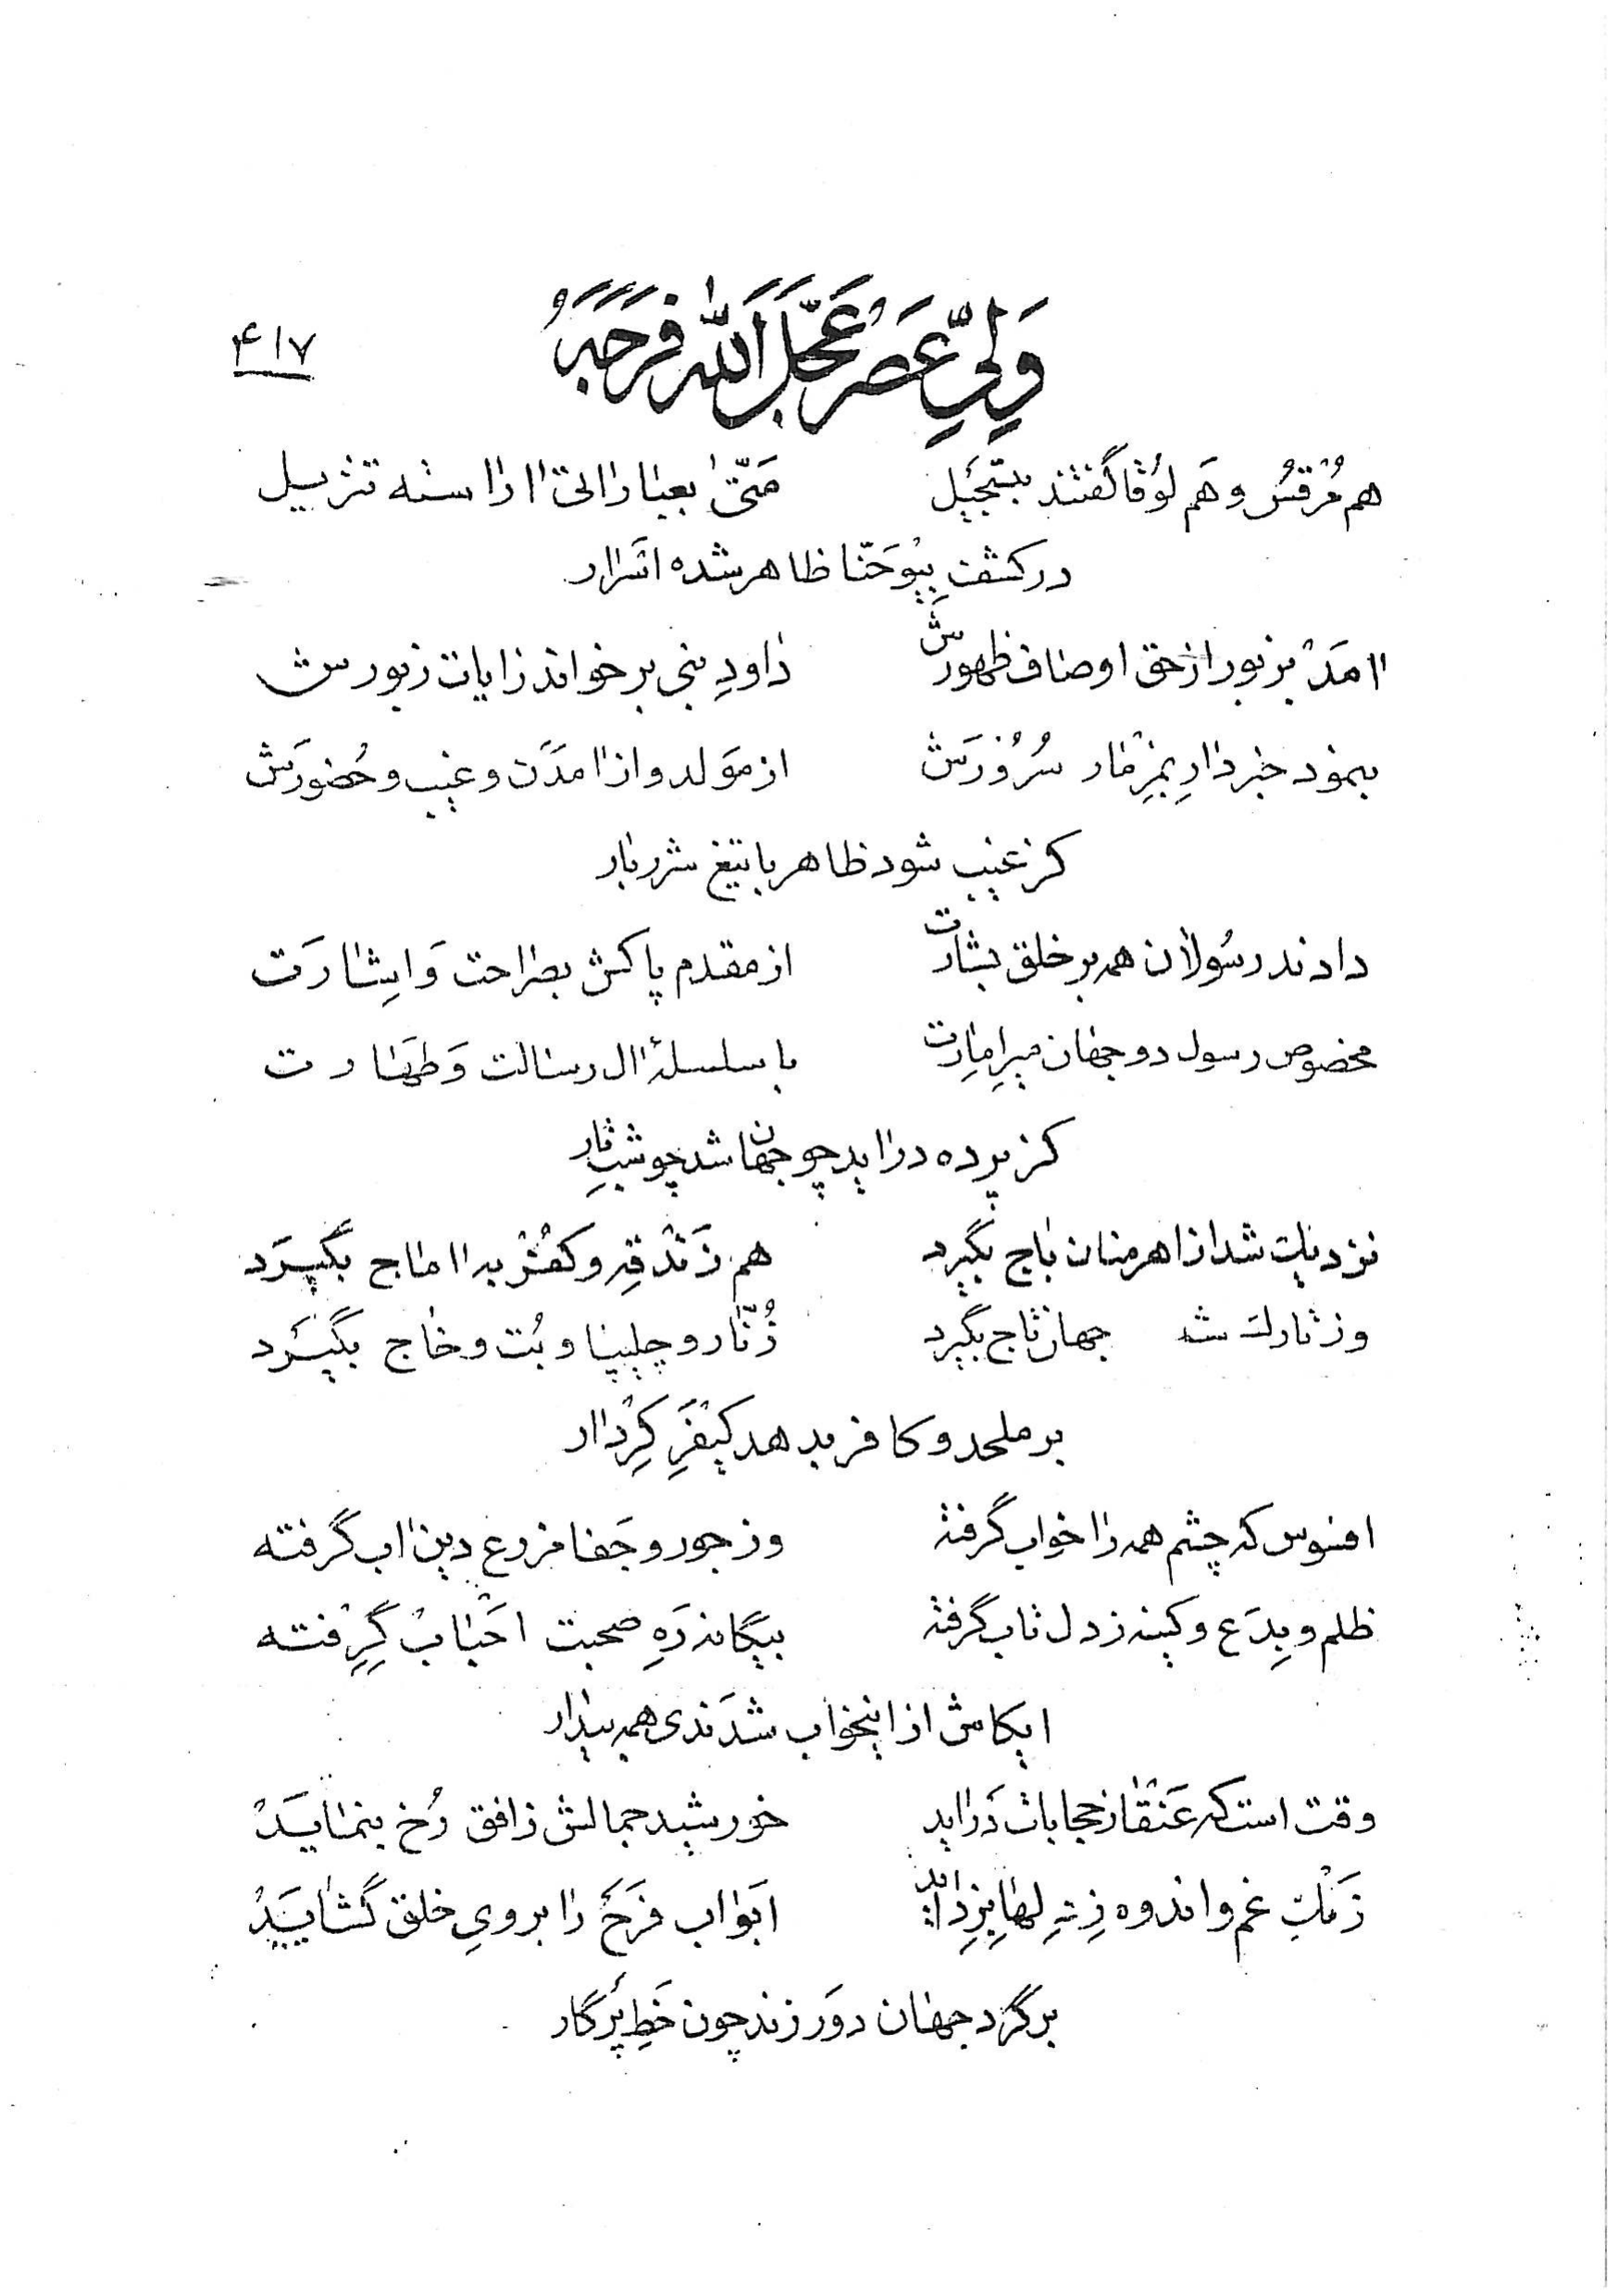 ۴۱۷
وَلیِّ عَصر عَجَّلَ اللّه فَرَجَهُ
هم مُرقسُ و هَم لوُقا گفتند بتَبجیل مَتّیٰ بعباراتی آراسته تنزیل
در کشفِ یوُحَنّا ظاهر شده اسَرار
آمَدْ بزبور از حق اوصاف ظهورش داودِ نبی برخواند ز ایات زبورش
بنمود خبردار بمِزمار سُرُورَش از مَولد و از آمَدَن و غیب و حُضورَش
کز غیب شود ظاهر با تیغ شرربار
دادند رسُولان همه بر خلق بشارت از مقدم پاکش بصراحت وَ اِشارَت
مخصوص رسول دو جهان میرِ اِمارت با سلسلهٔ ال رسالت وَ طَهَارت
کز پرده دراید چو جهان شد چو شبِ تار
نزدیک شد از اهرمنان باج بگیرد هم زَندَقه و کفر به آماج بگیرَد
وز تارک ش جهان تاج بگیرد زُنّار و چلیپا و بُت و خاج بگیَرد
بر ملحد و کافر بدهد کیفَرِ کِرْدار
افسوس که چشم همه را خواب گرفته وز جور و جَفا مزرع دین اب گرفته
ظلم و بِدَع و کینه ز دل تاب گرفته بیگانه رَهِ صحبت احْبابْ گِرِفته
ایکاش از اینخواب شدَندی همه بیدار
وقت است که عَنْقا ز حجابات دَراید خورشید جمالش ز افق رُخ بنمایَدْ
زَنگِ غم و اندوه زِ دِلها بِزداید ابَواب فرَحَ را برویِ خلق گشایَدْ
بر گرد جهان دَور زند چون خَطِ پَرگار